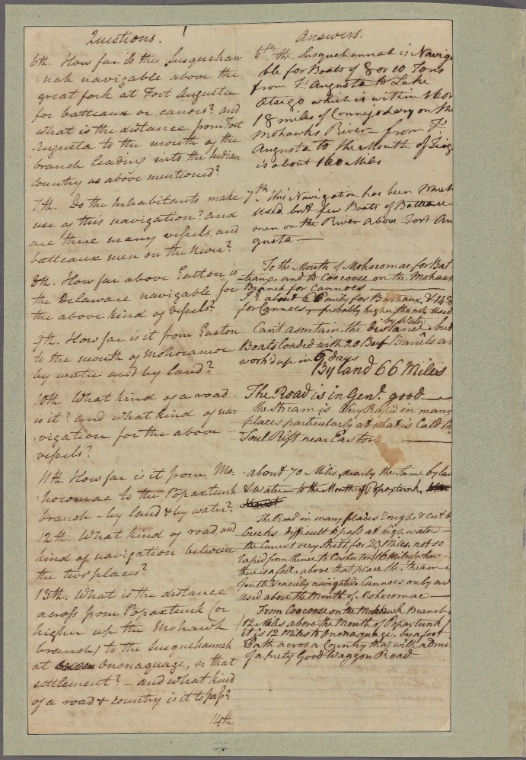 Questions.
6th. How far is the Susqueham
nah navigable above the
great fork at Fort Augusta
for batteaux or canoes? and
what is the distance from Fort
Augusta to the mouth of the
branch leading into the Indian
Country as above mentioned?
7th. Do the Inhabitants make
use of this navigation? and
are there many vessels, and
batteaux men on the River?
8th. How far above Easton is
the Delaware navigable for
the above kind of vessels?
9th. How far is it from Easton
to the mouth of
by water and by land?
10th. What kind of a road
is it? and what kind of nav
-igation for the above
vessels?
11th. How far is it from Mo
hocomac to the Popaxtunk
branch - by land & by water?
12th. What kind of road and
kind of navigation between
the two places?
13th. What is the distance
across from Popaxtunk (or
higher up the Mohawk
branch) to the Susquehannah
at ononaquage, or that
settlement? - and what kind
of a road & country is it to pass?
14th
Answers.
6th. the Susquehannah is Navig
ble for Boats of 8 or 10 Tons
from Ft. Augusta to Lake
Otsego which is within
18 miles of Connejohary on the
Mohawks River from Ft.
Augusta to the Mouth of
is about 160 Miles
7th. This Navigation has been
used but few Boats or Batteaux
men on the River above Fort Au
gusta —
To the Mouth of Mohocomac for Bat
teaux, and to Coocoose on the Mohawk
Branch for Cannoes
about 66 miles for Batteaux &
for Cannoes, - probably higher than is used
Cant ascertain the distance but
Boats loaded with 20 Beef Barrels are
work'd up in 6 days
By land 66 Miles
The Road is in Genl. good —
the Stream is Very Rapid in many
places particularly at what is Call'd the
Foul Rift near Easton
about 70 Miles, nearly the same by lan
& water to the Mouth of Popaxtunk,
The Road in many places Rough & bad
Creeks difficult to pass at high water
the Current very Swift for 25 Miles not so
rapid from thence to
there is a fast above that place the Stream is
Gentle & easily navigated Cannoes only are
used above the Mouth of Mohocomac —
From Coocoose on the Mohawk Branch
12 Miles above the Mouth of Popaxtunk
it is 12 Miles to onenaquage, by a foot
Path across a Country that will admit
of a prety Good Waggon Road